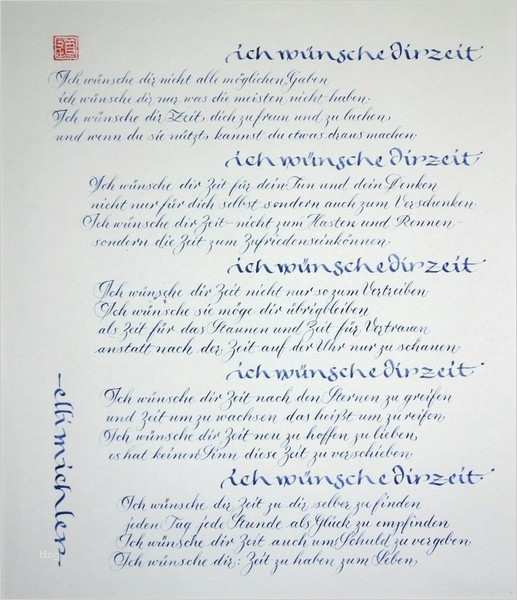 ich wünsche dir zeit
Ich wünsche dir nicht alle möglichen Gaben
ich wünsche dir nur was die meisten nicht haben.
Ich wünsche dir Zeit, dich zu freun und zu lachen,
und wenn du sie nützt, kannst du etwas draus machen.
ich wünsche dir zeit
Ich wünsche dir Zeit für dein Tun und dein Denken
nicht nur für dich selbst sondern auch zum Verschenken.
Ich wünsche dir Zeit – nicht zum Hasten und Rennen –
sondern die Zeit zum Zufriedenseinkönnen.
ich wünsche dir zeit
Ich wünsche dir Zeit nicht nur so zum Vertreiben
Ich wünsche sie möge dir übrigbleiben
als Zeit für das Staunen und Zeit für Vertrauen
anstatt nach der Zeit auf der Uhr nur zu schauen.
ich wünsche dir zeit
Ich wünsche dir Zeit nach den Sternen zu greifen
und Zeit um zu wachsen das heißt um zu reifen.
Ich wünsche dir Zeit neu zu hoffen zu lieben,
es hat keinen Sinn diese Zeit zu verschieben.
ich wünsche dir zeit
Ich wünsche dir Zeit zu dir selber zu finden
jeden Tag jede Stunde als Glück zu empfinden
Ich wünsche dir Zeit auch um Schuld zu vergeben.
Ich wünsche dir: Zeit zu haben zum Leben.
– elli michler –